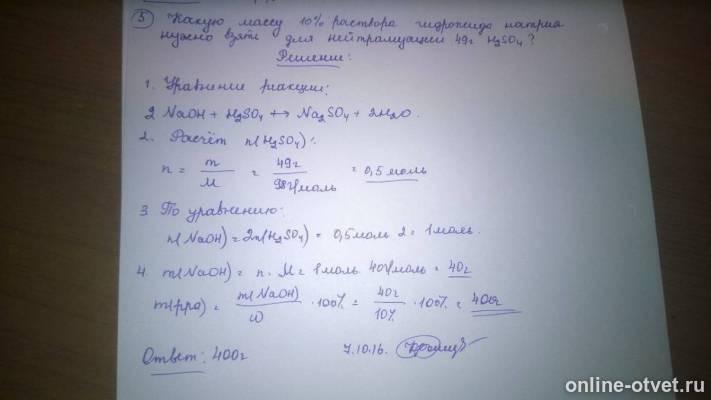 5 Какую массу 10% раствора гидроксида натрия
нужно взять для нейтрализации 49г H₂SO₄?
Решение:
1. Уравнение реакции:
2 NaOH + H₂SO₄ ↔ Na₂SO₄ + 2H₂O.
2. Расчёт n(H₂SO₄):
n = m/M = 49г/98г/моль = 0,5 моль
3. По уравнению:
n(NaOH) = 2n(H₂SO₄) = 0,5моль · 2 = 1 моль.
4. m(NaOH) = n · M = 1моль · 40г/моль = 40г
m(р-ра) = m(NaOH)/ω · 100% = 40г/10% · 100% = 400г
Ответ: 400г
7.10.16.
online-otvet.ru